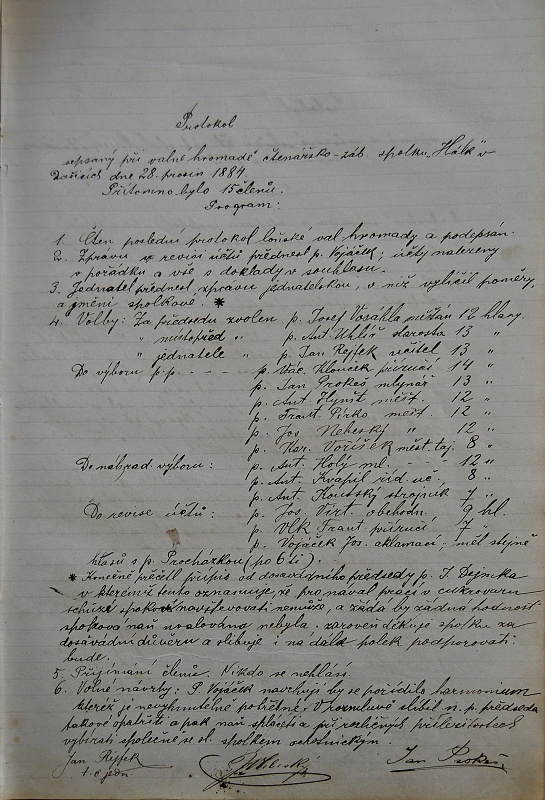 Protokol
sepsaný při valné hromadě čtenářsko-záb. spolku „Hálk" v
dne 28. prosin 1884
Přítomno bylo 15 členů.
Program:
1. Čten poslední protokol loňské val. hromady a podepsán.
2. Zprávu o revisi účtů přednesl p. Vojáček; účty nalezeny
v pořádku a vše s doklady v souhlasu.
3. Jednatel přednesl zprávu jednatelskou, v níž vylíčil poměry,
a jmění spolkové. *
4. Volby: Za předsedu zvolen p. Josef Vosáhla měšťan 12 hlasy
„ místopřed „ p. Ant. Uhlíř starosta 13 „
„ jednatele „ p. Jan Rejfek učitel 13 „
Do výboru p.p. - - - - p. Vác. Klouček příruč. 14 „
p. Jan Prokeš mlynář 13 „
p. Ant. Hynšt měšť. 12 „
p. Frant. Pírko měšť. 12 „
p. Jos. „ 12 „
p. Kar. Voříšek měst. taj. 8 „
Do náhrad. výboru: p. Ant. Holý ml. - - 12 „
p. Ant. Kvapil říd. uč. 8 „
p. Ant. Koutský strojník 7 „
Do revise účtů: p. Jos. Virt. obchodn. 9 hl.
p. Vlk Frant. příručí 7 „
p. Vojáček Jos. aklamací; měl stejně
hlasů s p. Procházkou (po 6ti).
* Konečně přečetl přípis od dosavadního předsedy p. J. Dejnka
v kterémž tento oznamuje, že pro nával prací v cukrovaru
schůze spolkové navštěvovati nemůže, a žádá by žádná hodnost
spolková naň uvalována nebyla. zároveň děkuje spolku za
dosavádní důvěru a slibuje i na dále spolek podporovati
bude.
5. Přijímání členů. Nikdo se nehlásí.
6. Volné návrhy: P. Vojáček navrhuje by se pořídilo harmonium
kteréž je nevyhnutelně potřebné. V rozmluvě slíbil n. p. předseda
takové opatřiti a pak naň spláceti a při rozličných příležitostech
vybírati společně se sl. spolkem ochotnickým.
Jan Rejfek
t. č. jedn.
Jan Prokeš